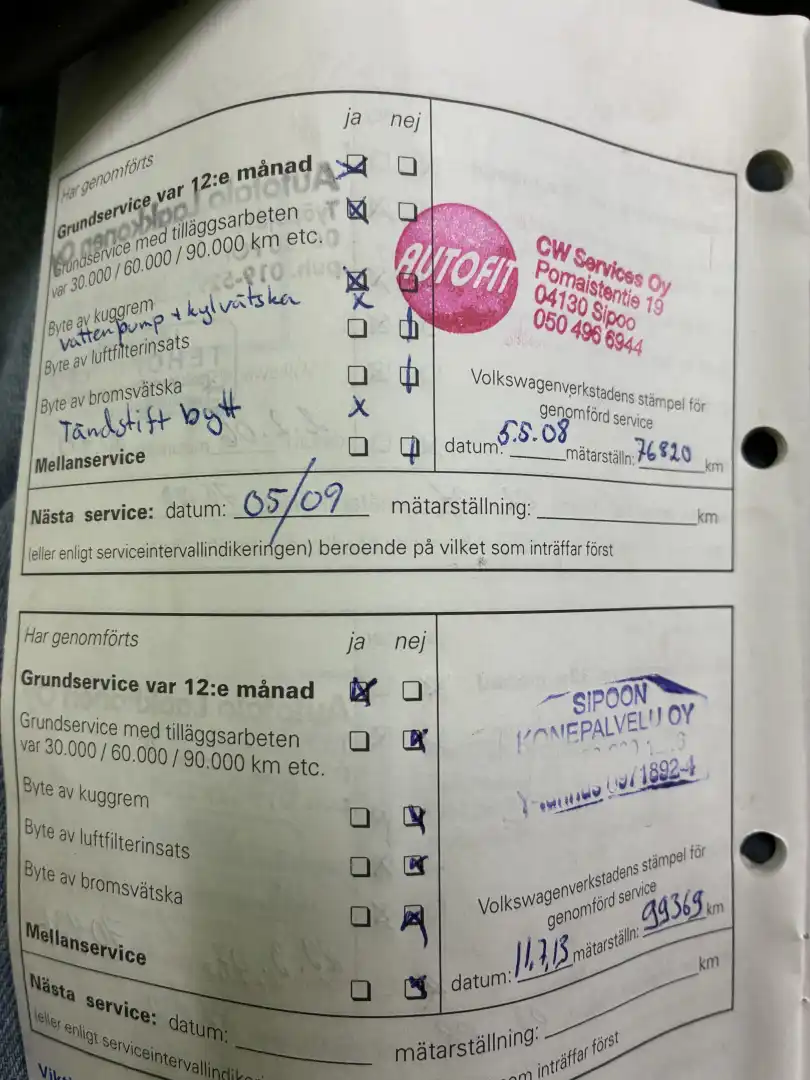 ja nej
Har genomförts
Grundservice var 12:e månad
Grundservice med tilläggsarbeten
var 30.000 / 60.000 / 90.000 km etc.
Byte av kuggrem
vattenpump + kylvätska
Byte av luftfilterinsats
Byte av bromsvätska
Tändstift bytt
Mellanservice
AUTOFIT
CW Services Oy
Pornaistentie 19
04130 Sipoo
050 496 6944
Volkswagenverkstadens stämpel för
genomförd service
datum: 5.5.08 mätarställn: 76820 km
Nästa service: datum: 05/09 mätarställning: km
(eller enligt serviceintervallindikeringen) beroende på vilket som inträffar först
Har genomförts ja nej
Grundservice var 12:e månad
Grundservice med tilläggsarbeten
var 30.000 / 60.000 / 90.000 km etc.
Byte av kuggrem
Byte av luftfilterinsats
Byte av bromsvätska
Mellanservice
SIPOON
KONEPALVELU OY
1892-4
Volkswagenverkstadens stämpel för
genomförd service
datum: 11.7.13 mätarställn: 99369 km
Nästa service: datum: mätarställning: km
(eller enligt
som inträffar först